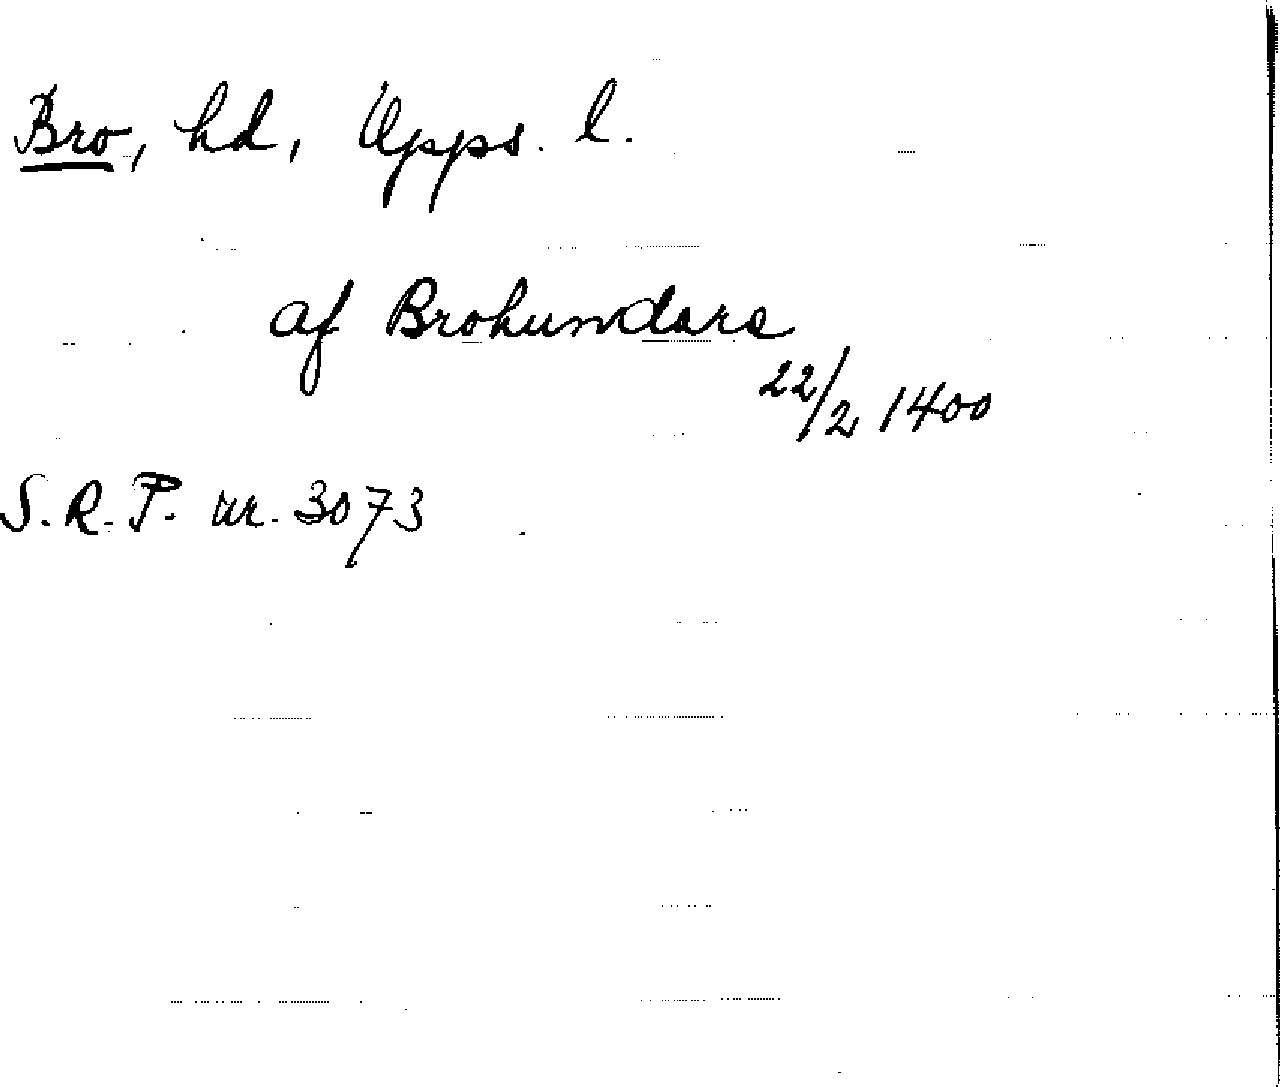 Bro, hd, Upps. l.
af Brohundare
22/2 1400
S.R.P. nr. 3073